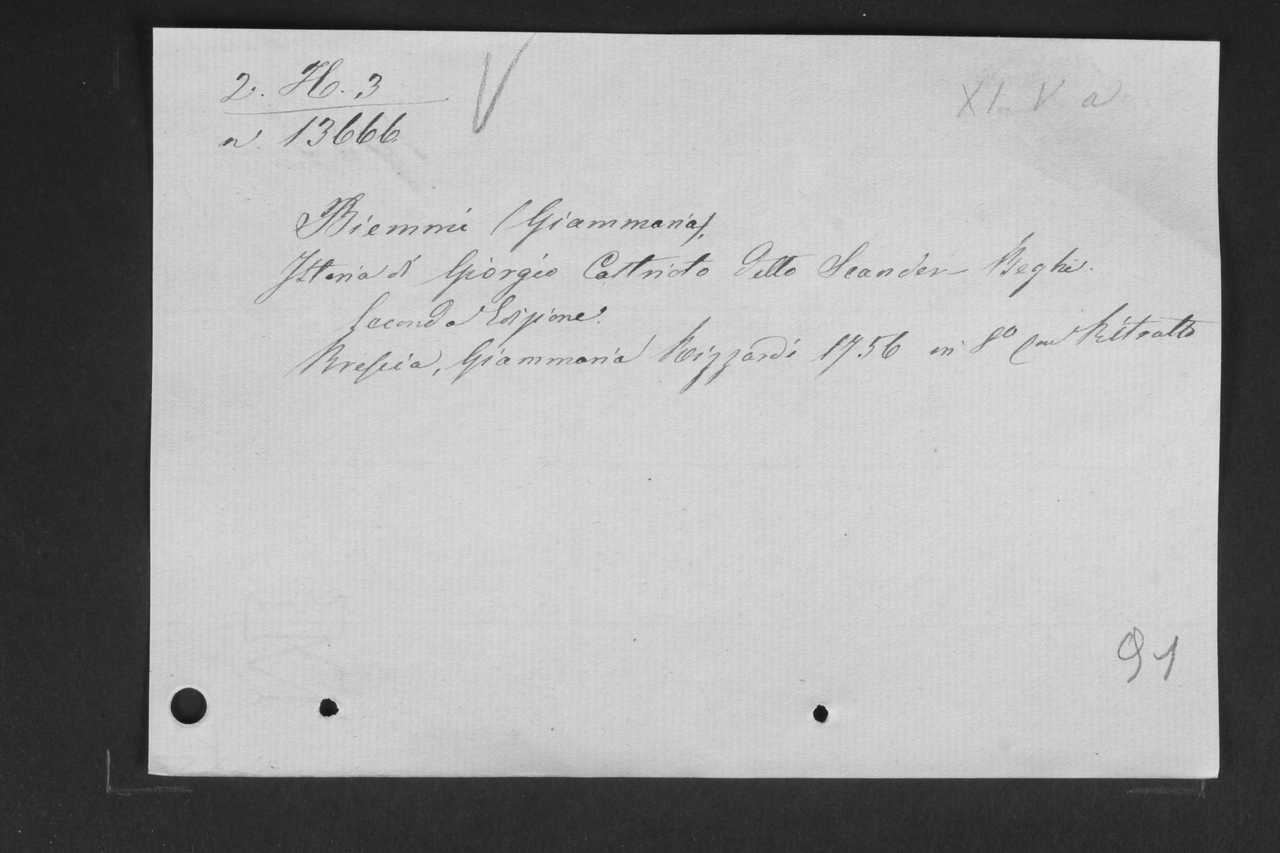 2. H. 3
V
XI V a
n. 13666
Biemmi (Giammaria).
Istoria di Giorgio Castrioto detto Scander Beghi.
Seconda Edizione.
Brescia, Giammaria Rizzardi 1756 in 8º con Ritratto
91